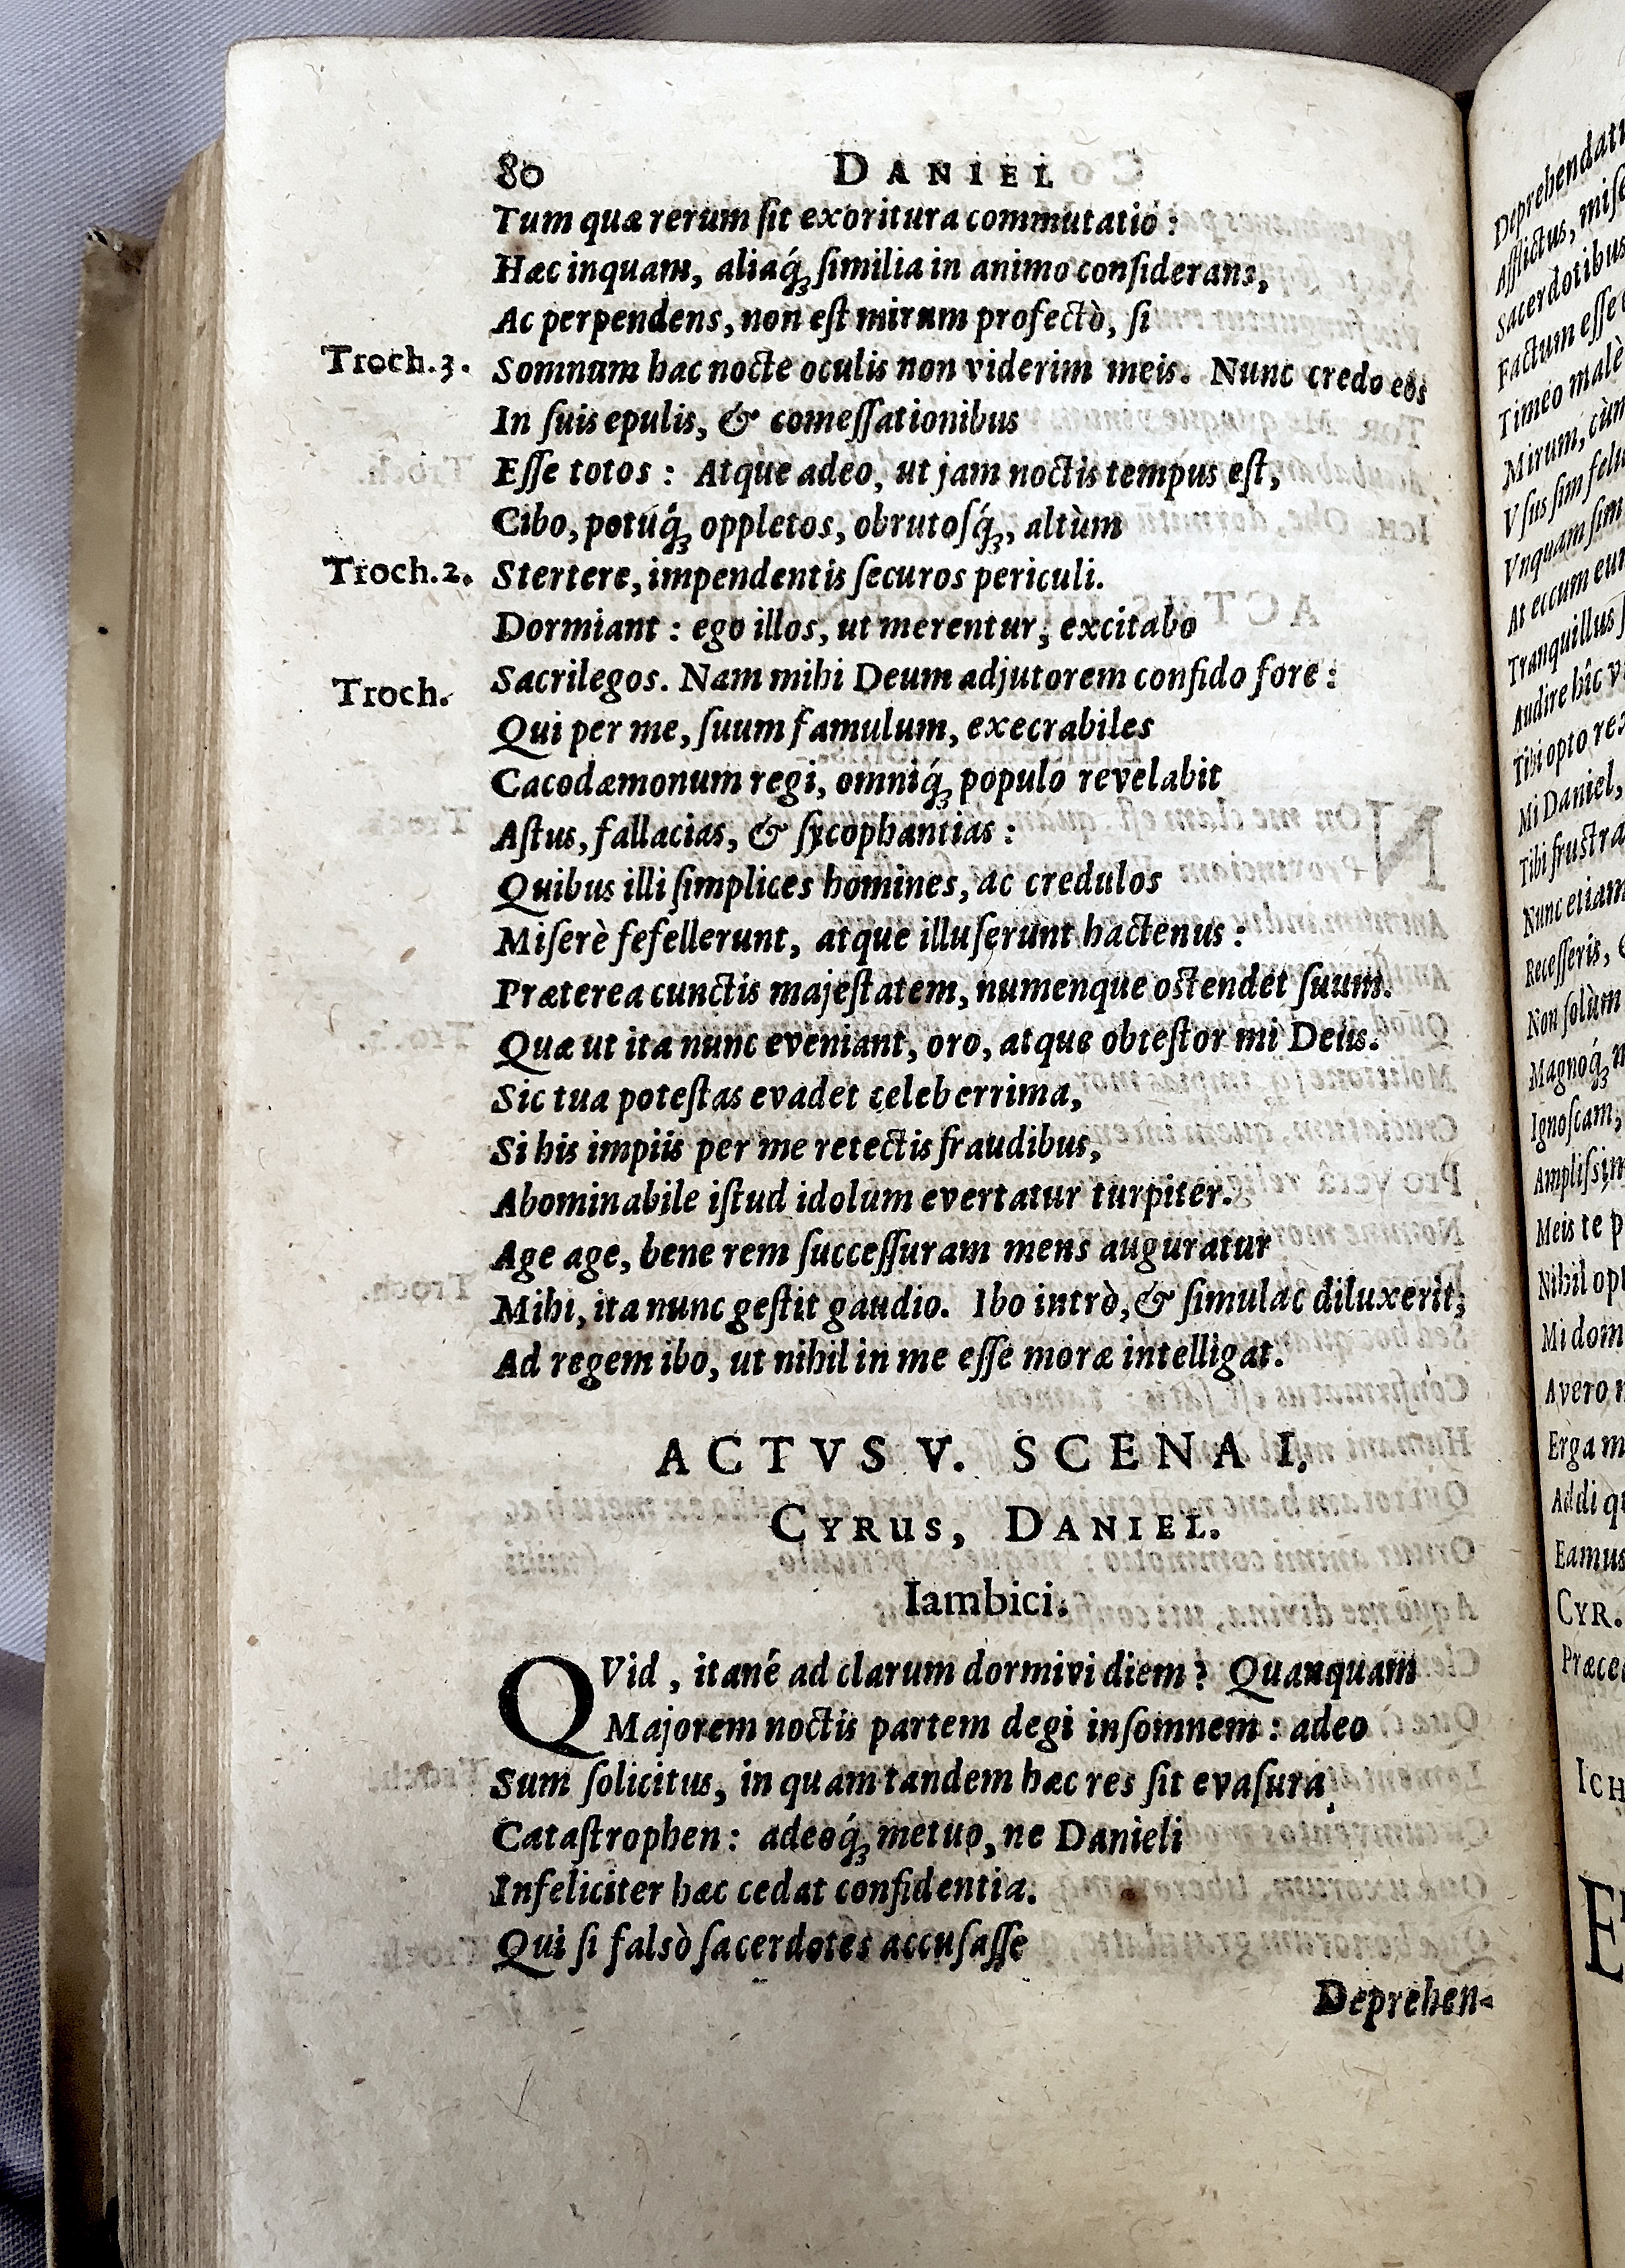 80 DANIEL
Tum quæ rerum ſit exoritura commutatio:
Hæc inquam, aliaq́ꝫ ſimilia in animo conſiderans,
Ac perpendens, non eſt mirum profectò, ſi
Troch.3. Somnum hac nocte oculis non viderim meis. Nunc credo eos
In ſuis epulis, & comeſſationibus
Eſſe totos: Atque adeo, ut jam noctis tempus eſt,
Cibo, potuq́ꝫ oppletos, obrutoſq́ꝫ, altùm
Troch.2. Stertere, impendentis ſecuros periculi.
Dormiant: ego illos, ut merentur, excitabo
Troch. Sacrilegos. Nam mihi Deum adjutorem confido fore:
Qui per me, ſuum famulum, execrabiles
Cacodæmonum regi, omniq́ꝫ populo revelabit
Aſtus, fallacias, & ſycophantias:
Quibus illi ſimplices homines, ac credulos
Miſerè fefellerunt, atque illuſerunt hactenus:
Præterea cunctis majeſtatem, numenque oſtendet ſuum.
Quæ ut ita nunc eveniant, oro, atque obteſtor mi Deus.
Sic tua poteſtas evadet celeberrima,
Si his impiis per me retectis fraudibus,
Abominabile iſtud idolum evertatur turpiter.
Age age, bene rem ſucceſſuram mens auguratur
Mihi, ita nunc geſtit gaudio. Ibo intrò, & ſimulac diluxerit,
Ad regem ibo, ut nihil in me eſſe moræ intelligat.
ACTVS V. SCENA I.
CYRUS, DANIEL.
Iambici.
QVid, itané ad clarum dormivi diem? Quanquam
Majorem noctis partem degi inſomnem: adeo
Sum ſolicitus, in quam tandem hæc res ſit evaſura
Cataſtrophen: adeoq́ꝫ metuo, ne Danieli
Infeliciter hæc cedat confidentia.
Qui ſi falsò ſacerdotes accuſaſſe
Deprehen-
Deprehendat
Afflictus, miſe
Sacerdotibus
Factum eſſe
Timeo malè
Mirum, cùm
Vſus ſim
Vnquam ſim
At eccum eum
Tranquillus
Audire hîc
Tibi opto
Mi Daniel,
Tibi fruſtra
Nunc etiam
Receſſeris,
Non ſolùm
Magnoq́ꝫ
Ignoſcam,
Ampliſsim
Meis te
Nihil
Mi dom
Avero
Erga
Addi
Eamus
CYR.
Præce
ICH
E